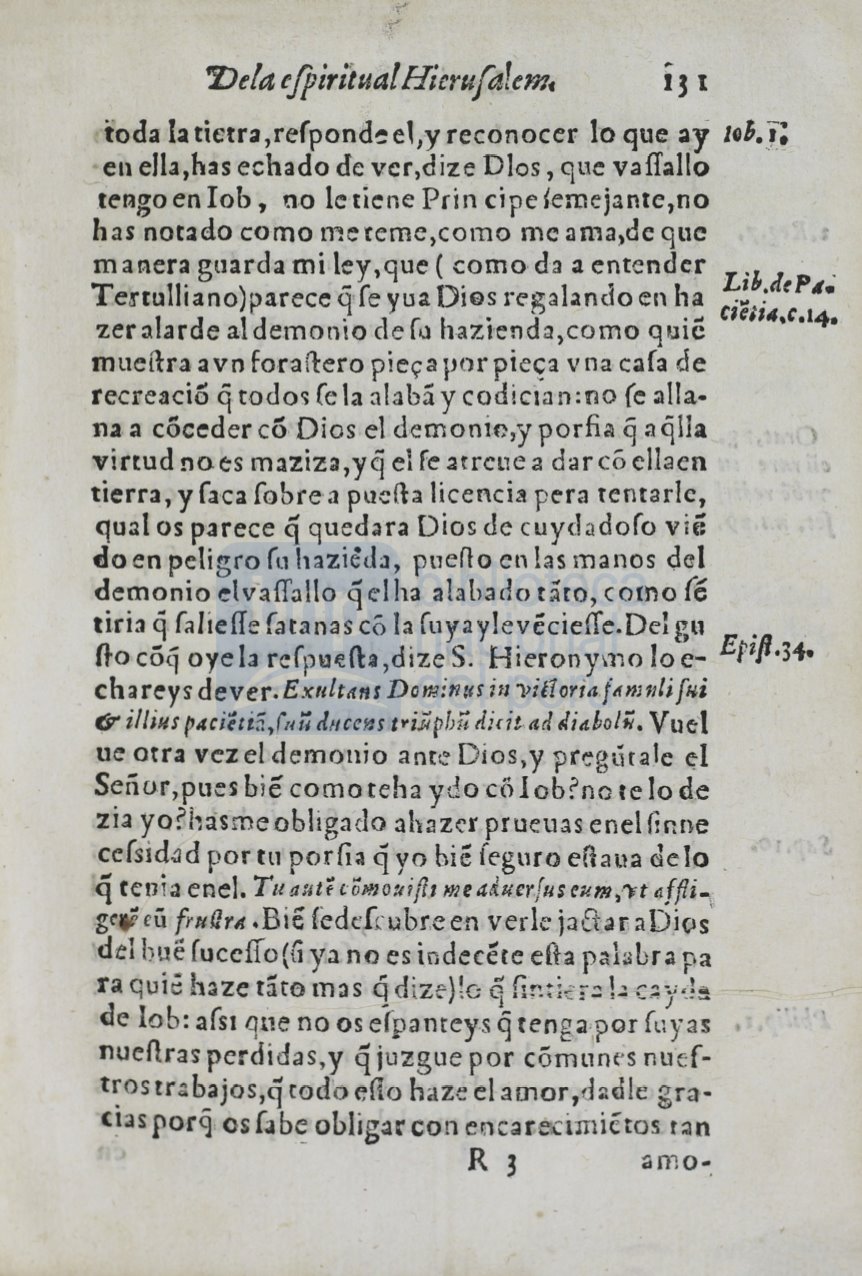 De la eſpiritual Hieruſalem. 131
toda la tierra, reſponde el, y reconocer lo que ay
Iob. 1.
en ella, has echado de ver, dize DIos, que vaſſallo
tengo en Iob, no le tiene Prin cipe ſemejante, no
has notado como me teme, como me ama, de que
manera guarda mi ley, que ( como da a entender
Tertulliano) parece q̃ ſe yua Dios regalando en ha
Lib. de Pa.
ciẽtia. c. 14.
zer alarde al demonio de ſu hazienda, como quiẽ
mueſtra a vn foraſtero pieça por pieça vna caſa de
recreaciõ q̃ todos ſe la alabã y codician: no ſe alla-
na a cõceder cõ Dios el demonio, y porfia q̃ aq̃lla
virtud no es maziza, y q̃ el ſe atreue a dar cõ ella en
tierra, y ſaca ſobre a pueſta licencia pera tentarle,
qual os parece q̃ quedara Dios de cuydadoſo viẽ
do en peligro ſu haziẽda, pueſto en las manos del
demonio el vaſſallo q̃ el ha alabado tãto, como ſẽ
tiria q̃ ſalieſſe ſatanas cõ la ſuya y le vẽcieſſe. Del gu
ſto cõ q̃ oye la reſpueſta, dize S. Hieronymo lo e-
Epiſt. 34.
chareys de ver. Exultans Dominus in victoria famuli ſui
& illius paciẽtiã, ſuũ ducens triũphũ dicit ad diabolũ. Vuel
ue otra vez el demonio ante Dios, y pregũtale el
Señor, pues biẽ como te ha ydo cõ Iob? no te lo de
zia yo? has me obligado a hazer prueuas en el ſin ne
ceſsidad por tu porfia q̃ yo biẽ ſeguro eſtaua de lo
q̃ tenia en el. Tu autẽ cõmouiſti me aduerſus eum, vt affli-
gerẽ eũ fruſtra. Biẽ ſe deſcubre en verle jactar a Dios
del buẽ ſuceſſo (ſi ya no es indecẽte eſta palabra pa
ra quiẽ haze tãto mas q̃ dize) lo q̃ ſintiera la cayda
de Iob: aſsi que no os eſpanteys q̃ tenga por ſuyas
nueſtras perdidas, y q̃ juzgue por cõmunes nueſ-
tros trabajos, q̃ todo eſto haze el amor, dadle gra-
cias porq̃ os ſabe obligar con encarecimiẽtos tan
R 3 amo-